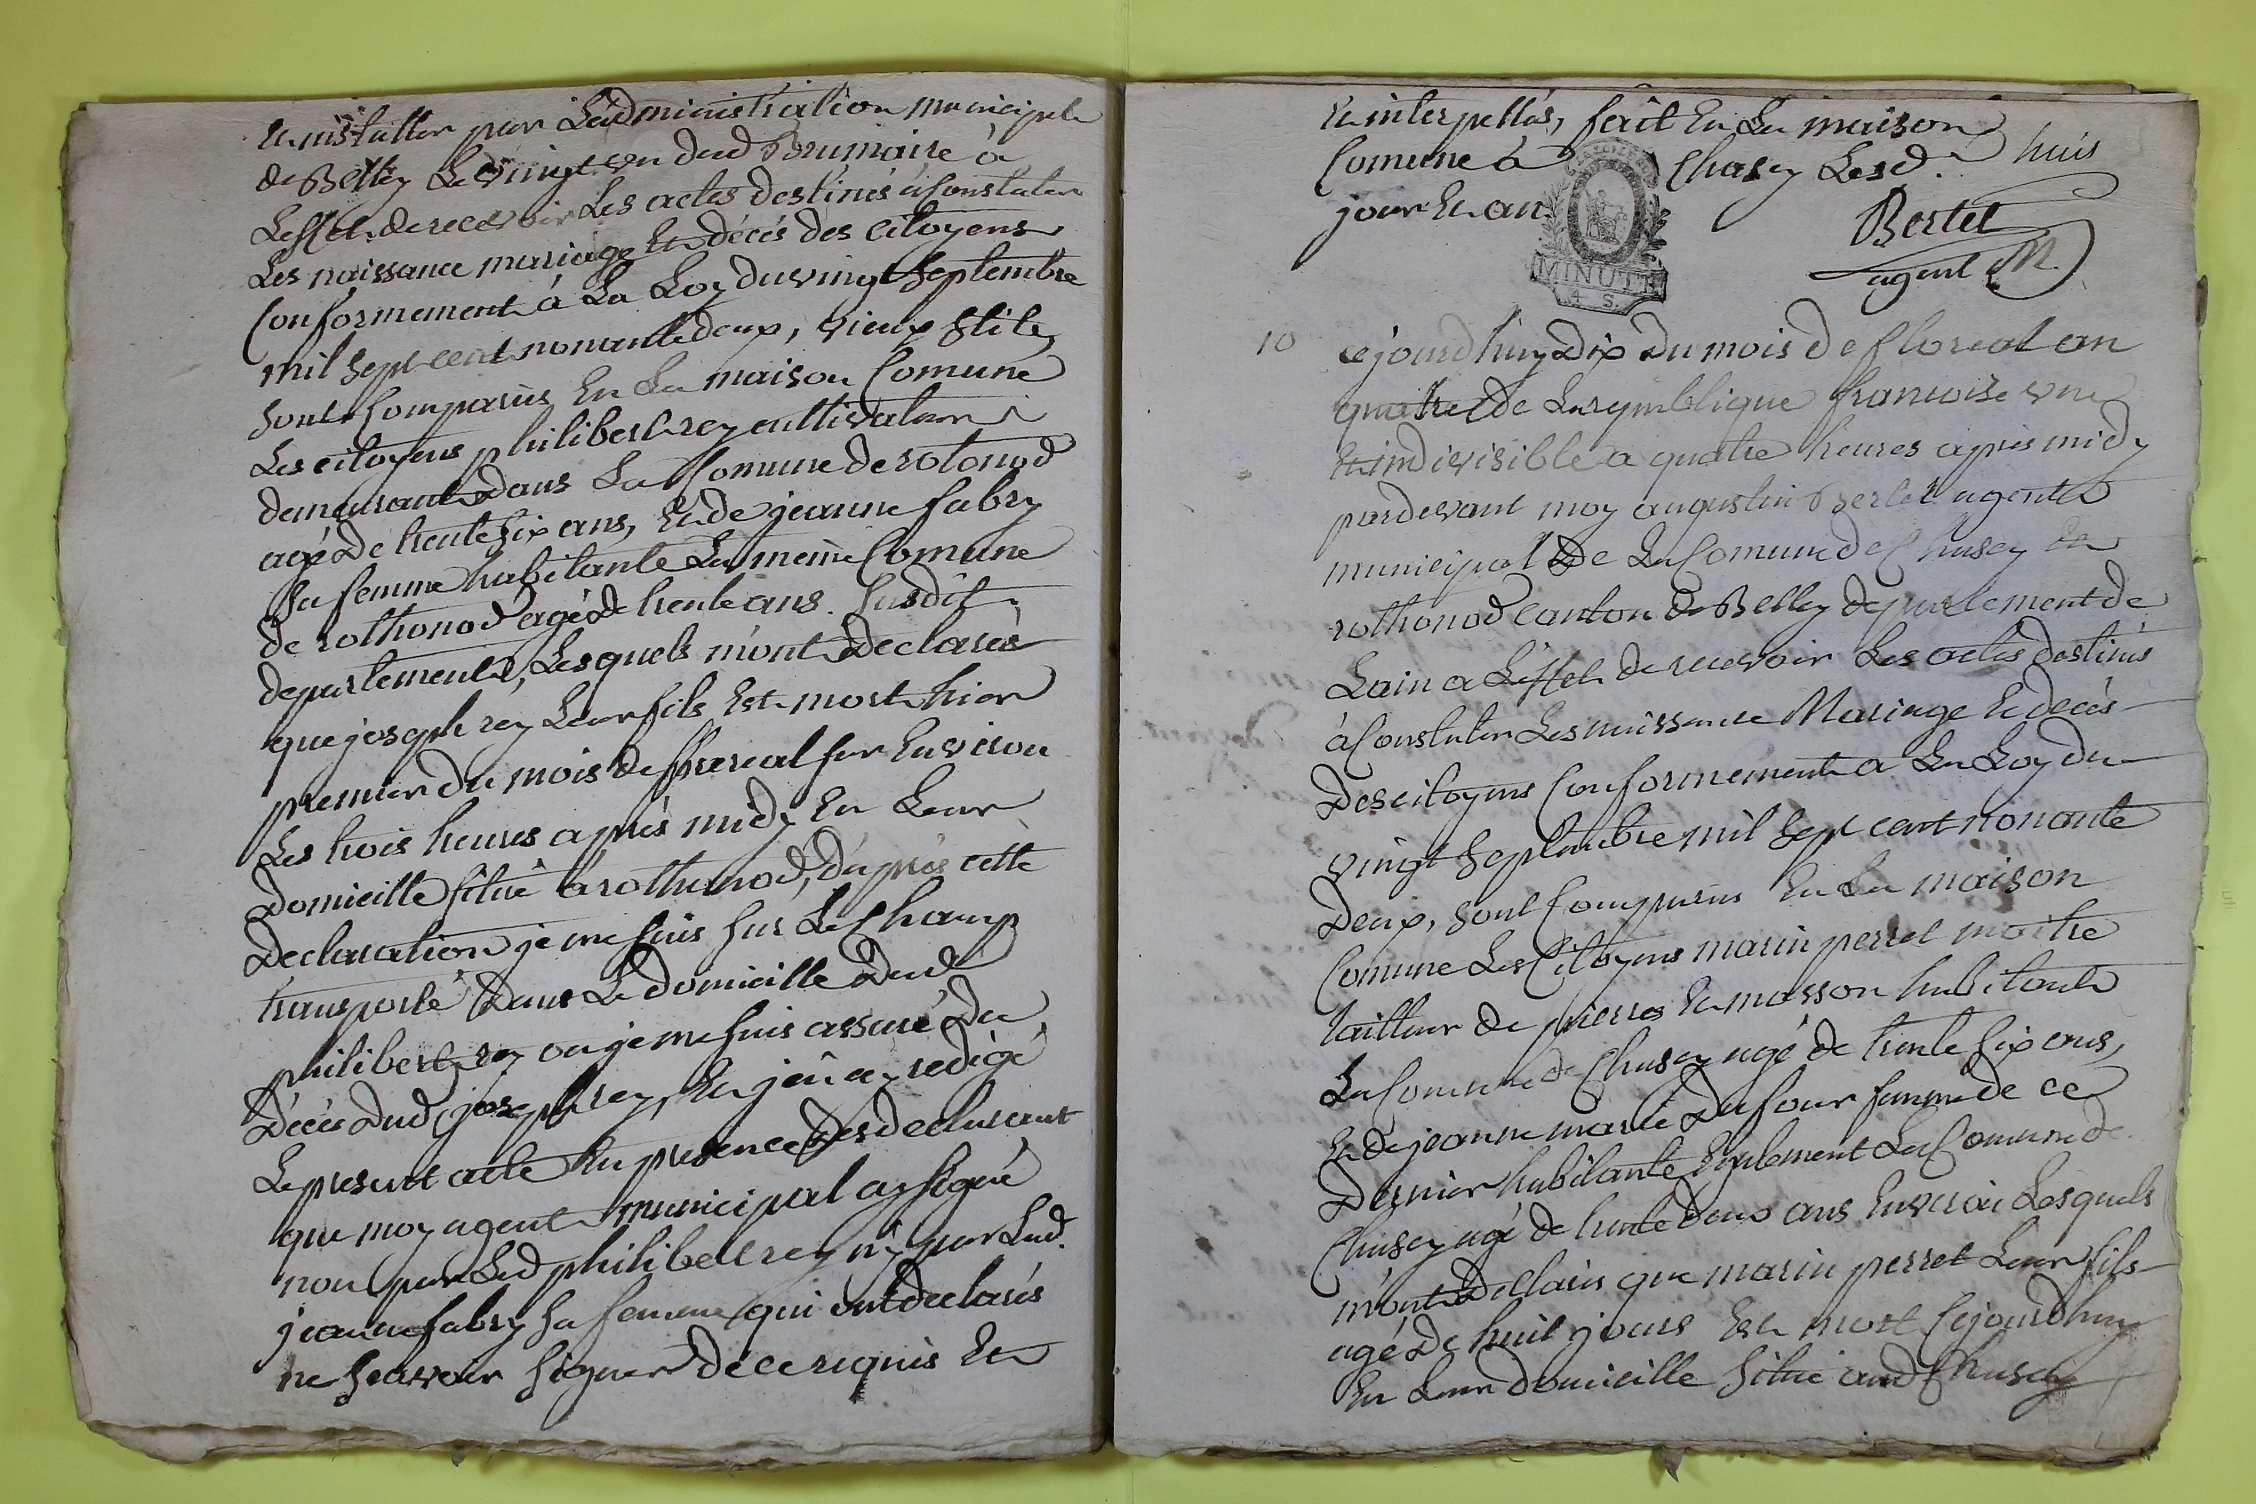 Et installer par Ladministration municipale
de Belley Le vingt un dud Brumaire à
Leffet de recevoir Les actes destinés à Constater
Les naissance mariage Et décés des Citoyens
Conformement à La Loy du vingt Septembre
mil Sept cent nonante deux, vieux Stile,
Sont Comparus En La maison Comune
Les citoyens philibert rey cultivateur
demeurant dans La Comune de rotonod
agé de trente Six ans, Et de jeanne fabry
Sa femme habitante La meme Comune
de rothonod agé de trente ans. Susdit
departement, Lesquels m'ont declarés
que joseph rey Leur fils Est mort hier
premier du mois de floreal Sur Environ
Les trois heures après midy En Leur
Domicille Situé à rothonod, d'après cette
Declaration je me Suis Sur Le Champ
transporté dans Le domicille dud
philibert rey ou je me Suis assuré du
Décés dud joseph rey, En j'en ay redigé
Le present acte En presence des declarant
que moy agent municipal ay Signé
non par Led philibert rey n'y par Lad.
jeanne fabry Sa femme qui ont declarés
ne Scavoir Signer de ce requis Et
Et interpellés, fait En La maison
Comune à Chasey Lesd. huis
jour Et an.
MINUTE
4 S.
Bertet
agent M.
10 cejourdhuy dix du mois de floreal an
quatre de La republique francoise une
Et indivisible a quatre heures après midy
pardevant moy augustin Bertet agent
municipal de La Comune de Chasey Et
rothonod canton de Belley departement de
Lain a Leffet de recevoir Les actes destinés
à Constater Les naissance Mariage Et decés
Des citoyens Conformement a La Loy du
vingt Septembre mil Sept cent nonante
Deux, Sont Comparus En La maison
Comune Les Citoyens marin perret maitre
tailleur de pierres Et masson habitant
La Comune de Chasey agé de trente Six ans,
Et de jeanne marie Dufour femme de ce
Dernier habitante Egalement La Comune de
Chasey agé de trente deux ans Environ Lesquels
m'ont Declarés que marin perret Leur fils
agé De huit jours Est mort Cejourdhuy
En Leur domicille Situé aud Chasey